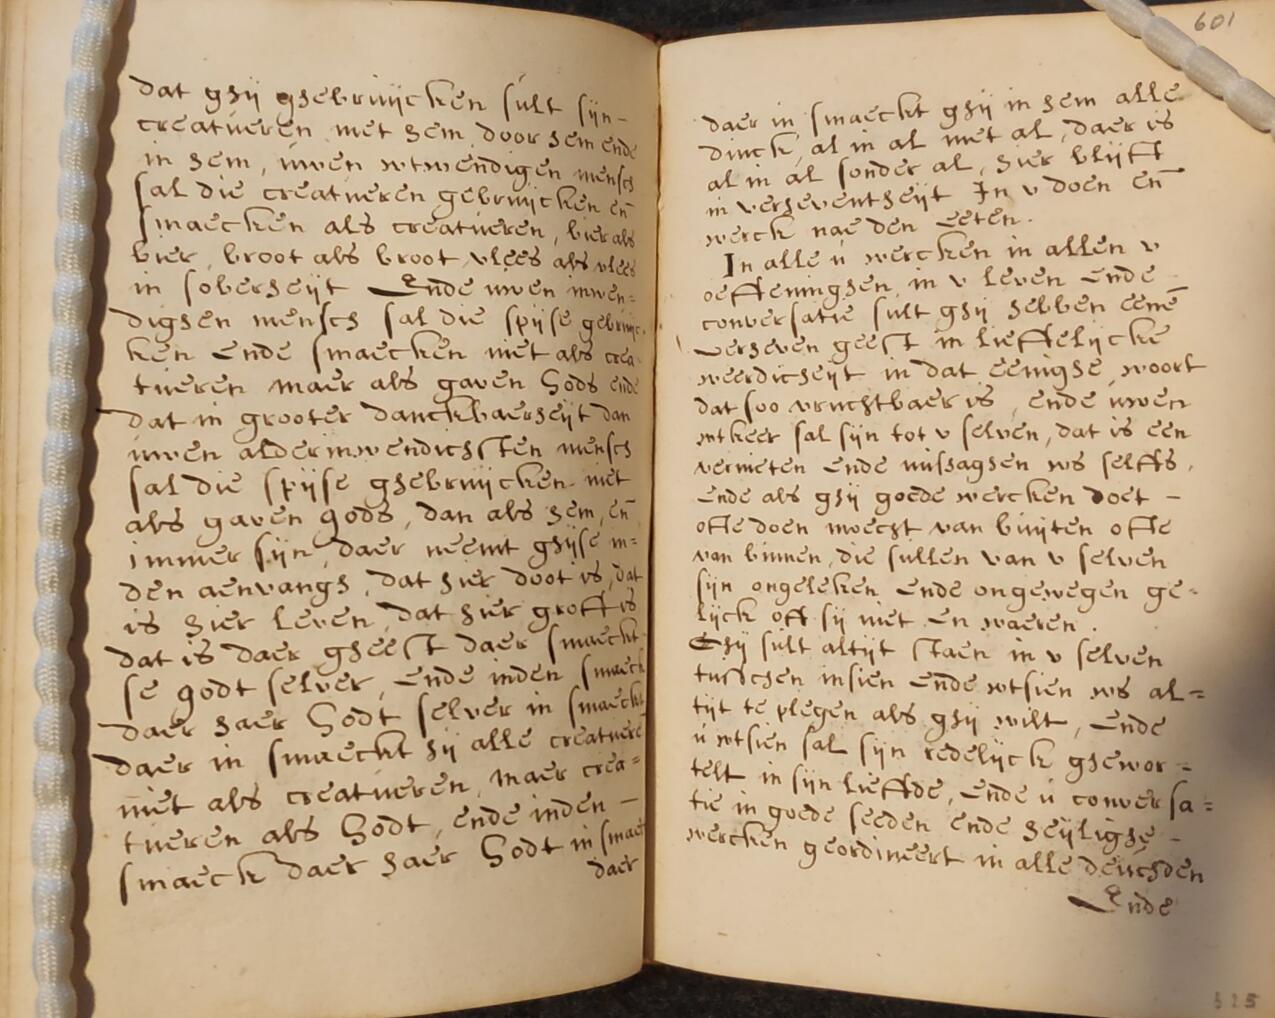 dat ghij ghebruijcken sult sijn
creatueren met hem door hem ende
in hem, uwen wtwendigen mensch
sal die creatueren gebruijcken en̄
smaecken als creatueren, bier als
bier, broot als broot, vlees als vlees
in soberheijt Ende uwen inwen=
dighen mensch sal die spijse gebruijc=
ken ende smaecken niet als crea=
tueren maer als gaven Gods ende
dat in grooter danckbaerheijt dan
uwen alderinwendichsten mensch
sal die spijse ghebruijcken niet
als gaven gods, dan als hem, en̄
immer sijn, daer neemt ghijse in=
den aenvangh, dat hier doot is, dat
is hier leven, dat hier groff is
dat is daer gheest daer smaeckt
se godt selver, ende inden smaeck
daer haer Godt selver in smaeckt
daer in smaeckt sij alle creatuerē
niet als creatueren, maer crea=
tueren als Godt, ende inden —
smaeck daer haer Godt in smaeckt
daer
601
daer in smaeckt ghij in hem alle
dinck, al in al met al, daer is
al in al sonder al, hier blijft
in verheventheijt In v doen en̄
werck nae den Eeten.
In alle u wercken in allen v
oeffeninghen, in v leven ende
conversatie sult ghij hebben eenē
verheven geest in lieffelijcke
weerdicheijt in dat eenighe woort
dat soo vruchtbaer is, ende uwen
intkeer sal sijn tot v selven, dat is een
vernieten ende mishaghen ws selffs,
ende als ghij goede wercken doet —
ofte doen moecht van buijten ofte
van binnen, die sullen van v selven
sijn ongeleken ende ongewegen ge=
lijck oft sij niet en waeren.
Ghij sult altijt staen in v selven
tusschen insien ende wtsien ws al=
tijt te plegen als ghij wilt, ende
u wtsien sal sijn redelijck ghewor=
telt in sijn lieffde, ende u conversa=
tie in goede seeden ende heijlighe —
wercken geordineert in alle deuchden
Ende